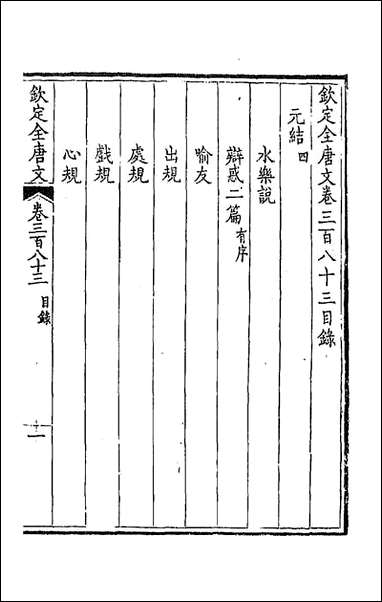 欽定全唐文卷三百八十三目錄
元結四
水樂說
辯惑二篇有序
喻友
出規
處規
戲規
心規
欽定全唐文 卷三百八十三 目錄 一